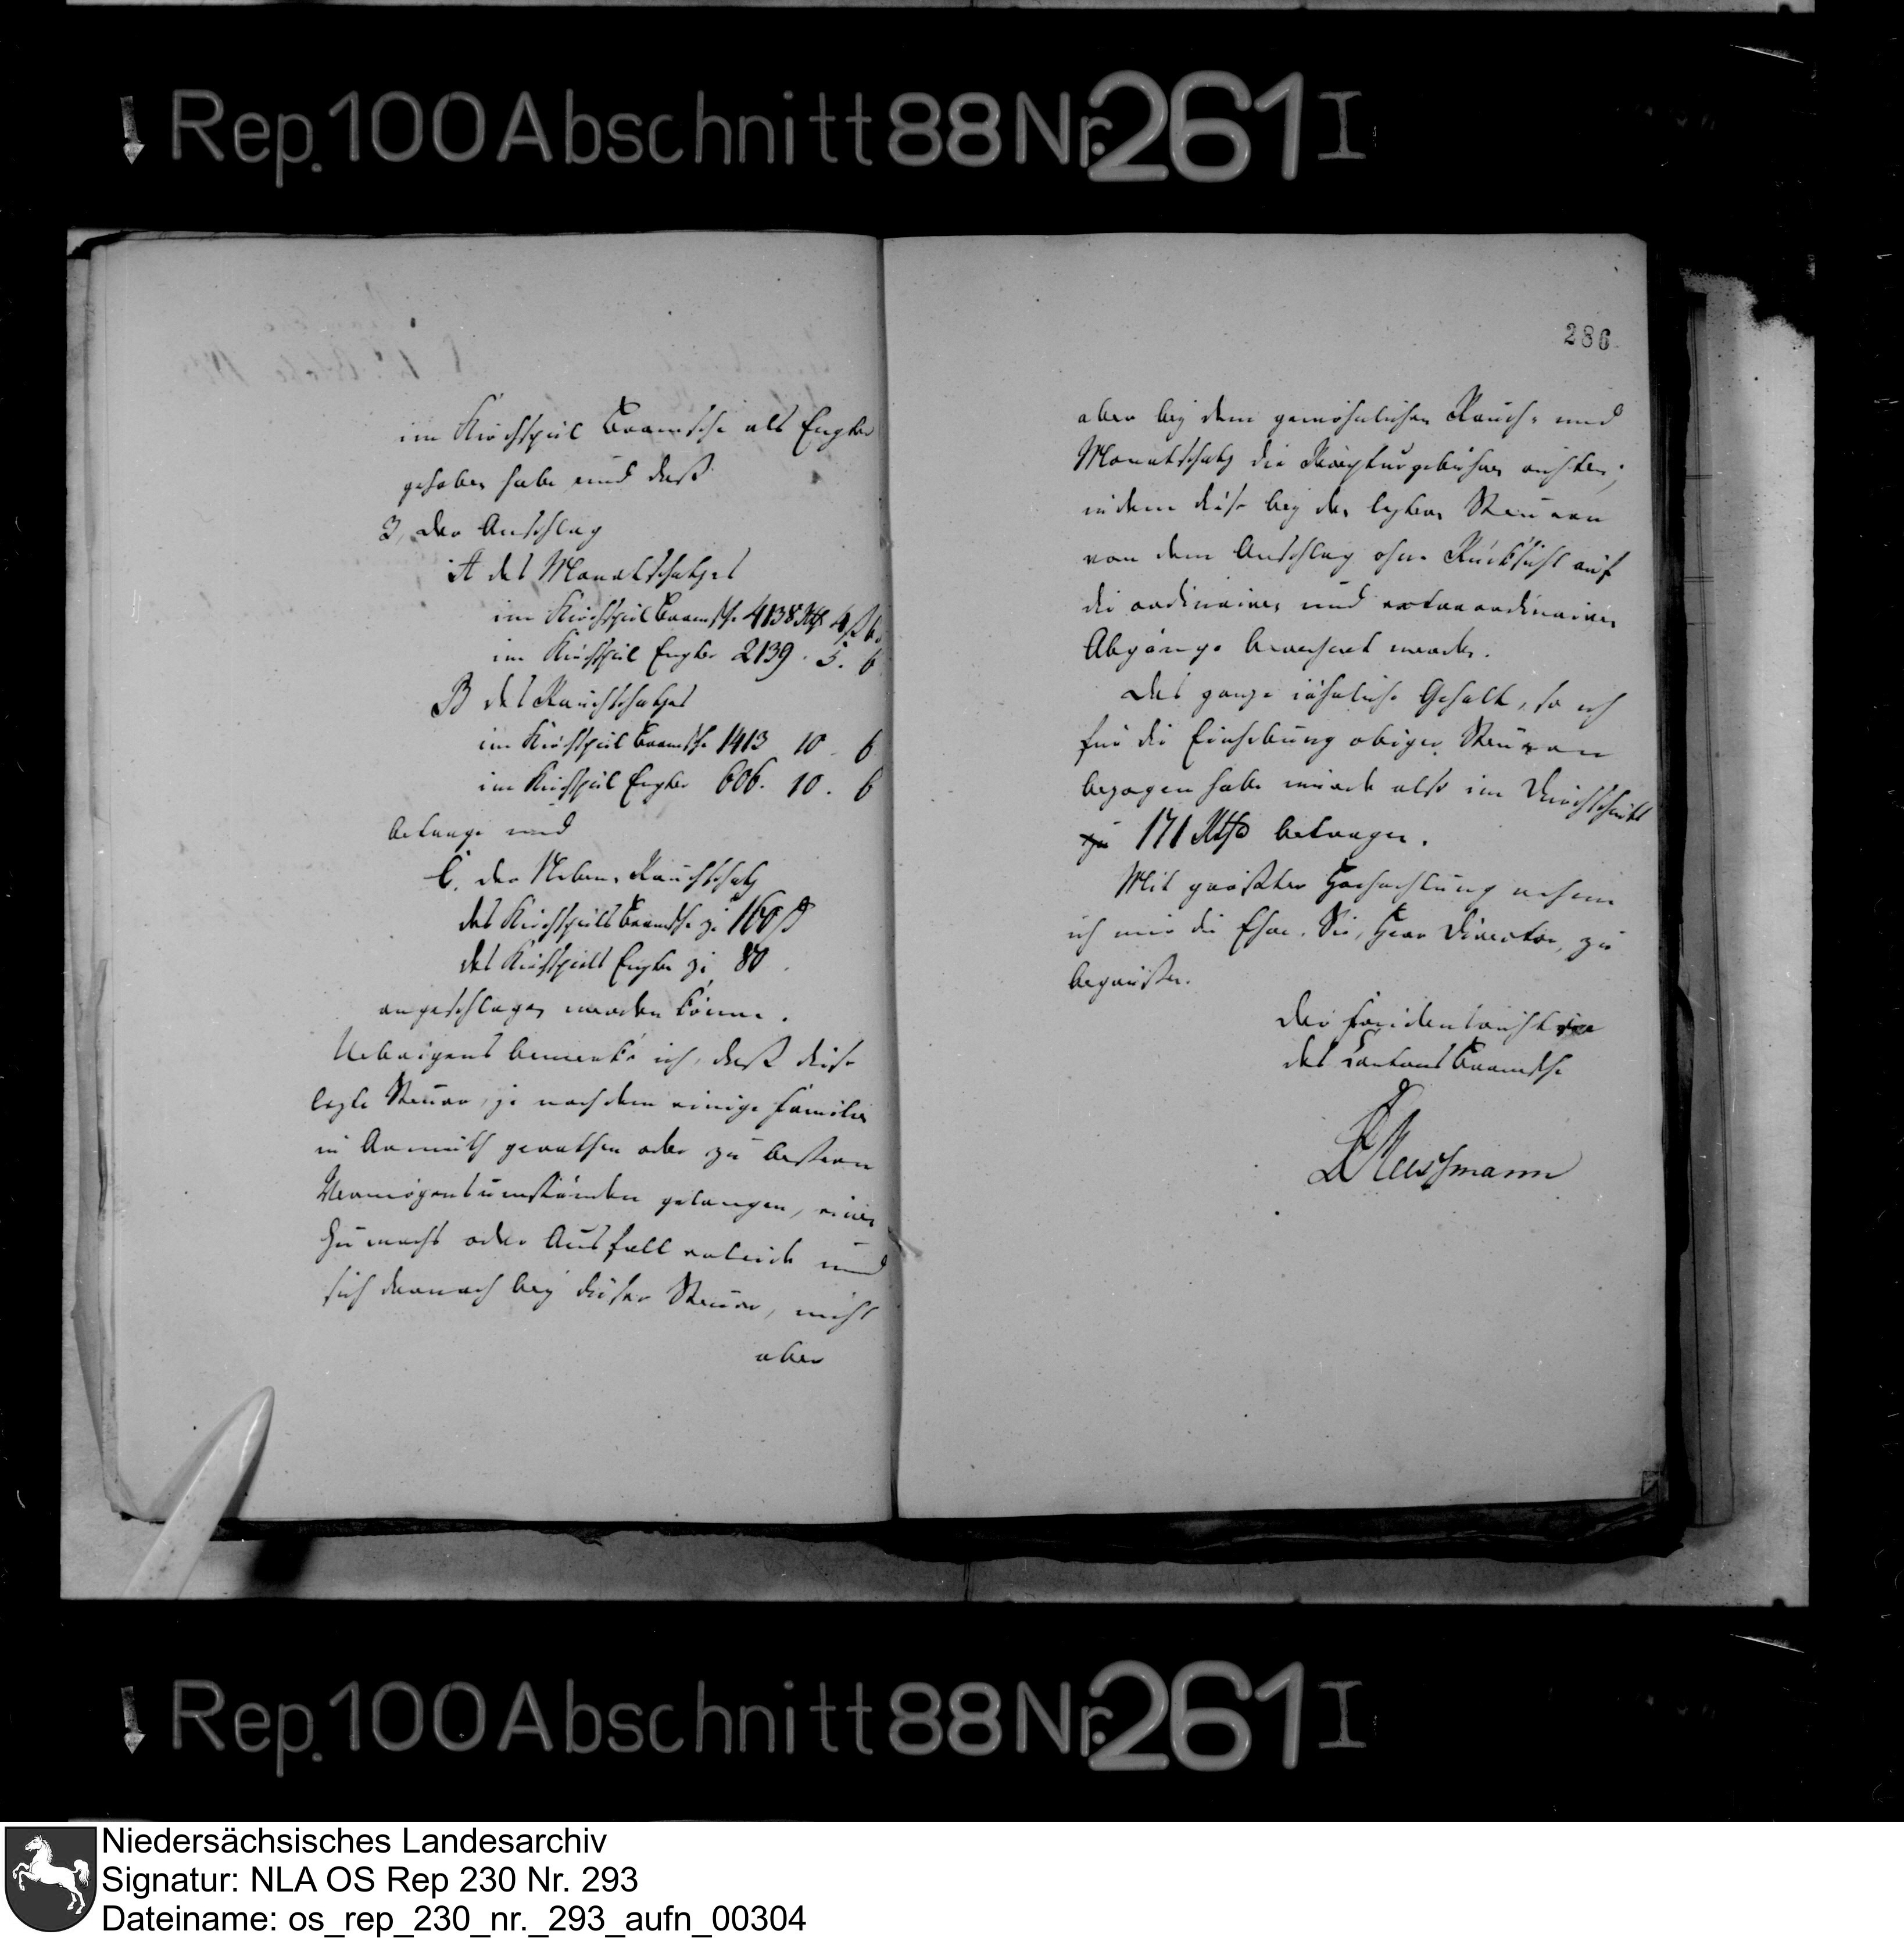 Rep. 100 Abschnitt 88 Nr. 261 I
im Kirchspiel Bramsche als Engter
gehoben habe und daß
3, der Anschlag
A des Monatschatzes
im Kirchspiel Bramsche 4138 Rthlr 4 ß 6
im Kirchspiel Engter 2139. 5. 6
B des Rauchschatzes
im Kirchspiel Bramsche 1413 10. 6
im Kirchspiel Engter 606. 10. 6
betrage und
C. der Neben-Rauchschatz
des Kirchspiels Bramsche zu 160
des Kirchspiels Engter zu 80.
angeschlagen werden könne.
Uebrigens bemerke ich, daß diese
lezte Steuer, je nachdem einige Familien
in Armuth gerathen oder zu bessern
Vermögensumständen gelangen, einen
Zuwachs oder Ausfall erleide und
sich darnach bey dieser Steuer, nicht
aber
286
aber bey dem gewöhnlichen Rauch- und
Monatschatz die Recepturgebühren richten;
indem diese bey den leztern Steuren
von dem Anschlag ohne Rücksicht auf
die ordinairen und extraordinairen
Abgänge berechnet werden.
Das ganze jährliche Gehalt, so ich
für die Einhebung obiger Steuren
bezogen habe würde also im Durchschnitt
zu 171 Rthlr betragen.
Mit größter Hochachtung nehme
ich mir die Ehre, Sie, Herr Director, zu
begrüßen.
Der Friedensrichter
des Cantons Bramsche
Niedersächsisches Landesarchiv
Signatur: NLA OS Rep 230 Nr. 293
Dateiname: os_rep_230_nr._293_aufn_00304
Rep. 100 Abschnitt 88 Nr. 261 I